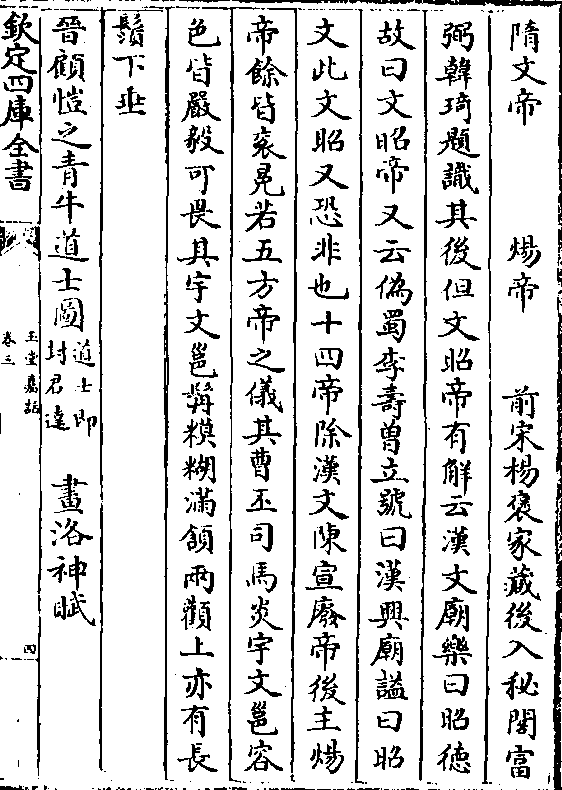 隋文帝　煬帝　前宋楊褒家藏後入秘閣富
弼韓琦題識其後但文昭帝有解云漢文廟樂曰昭德
故曰文昭帝又云偽蜀李壽曽立號曰漢興廟諡曰昭
文此文昭又恐非也十四帝除漢文陳宣廢帝後主煬
帝餘皆衮冕若五方帝之儀其曹丕司馬炎宇文邕容
色皆嚴毅可畏其宇文邕髯糢糊滿頷兩顴上亦有長
鬚下垂
晉顧愷之青牛道士圖道士即封君達　畫洛神賦
欽定四庫全書
玉堂嘉話
卷三
四